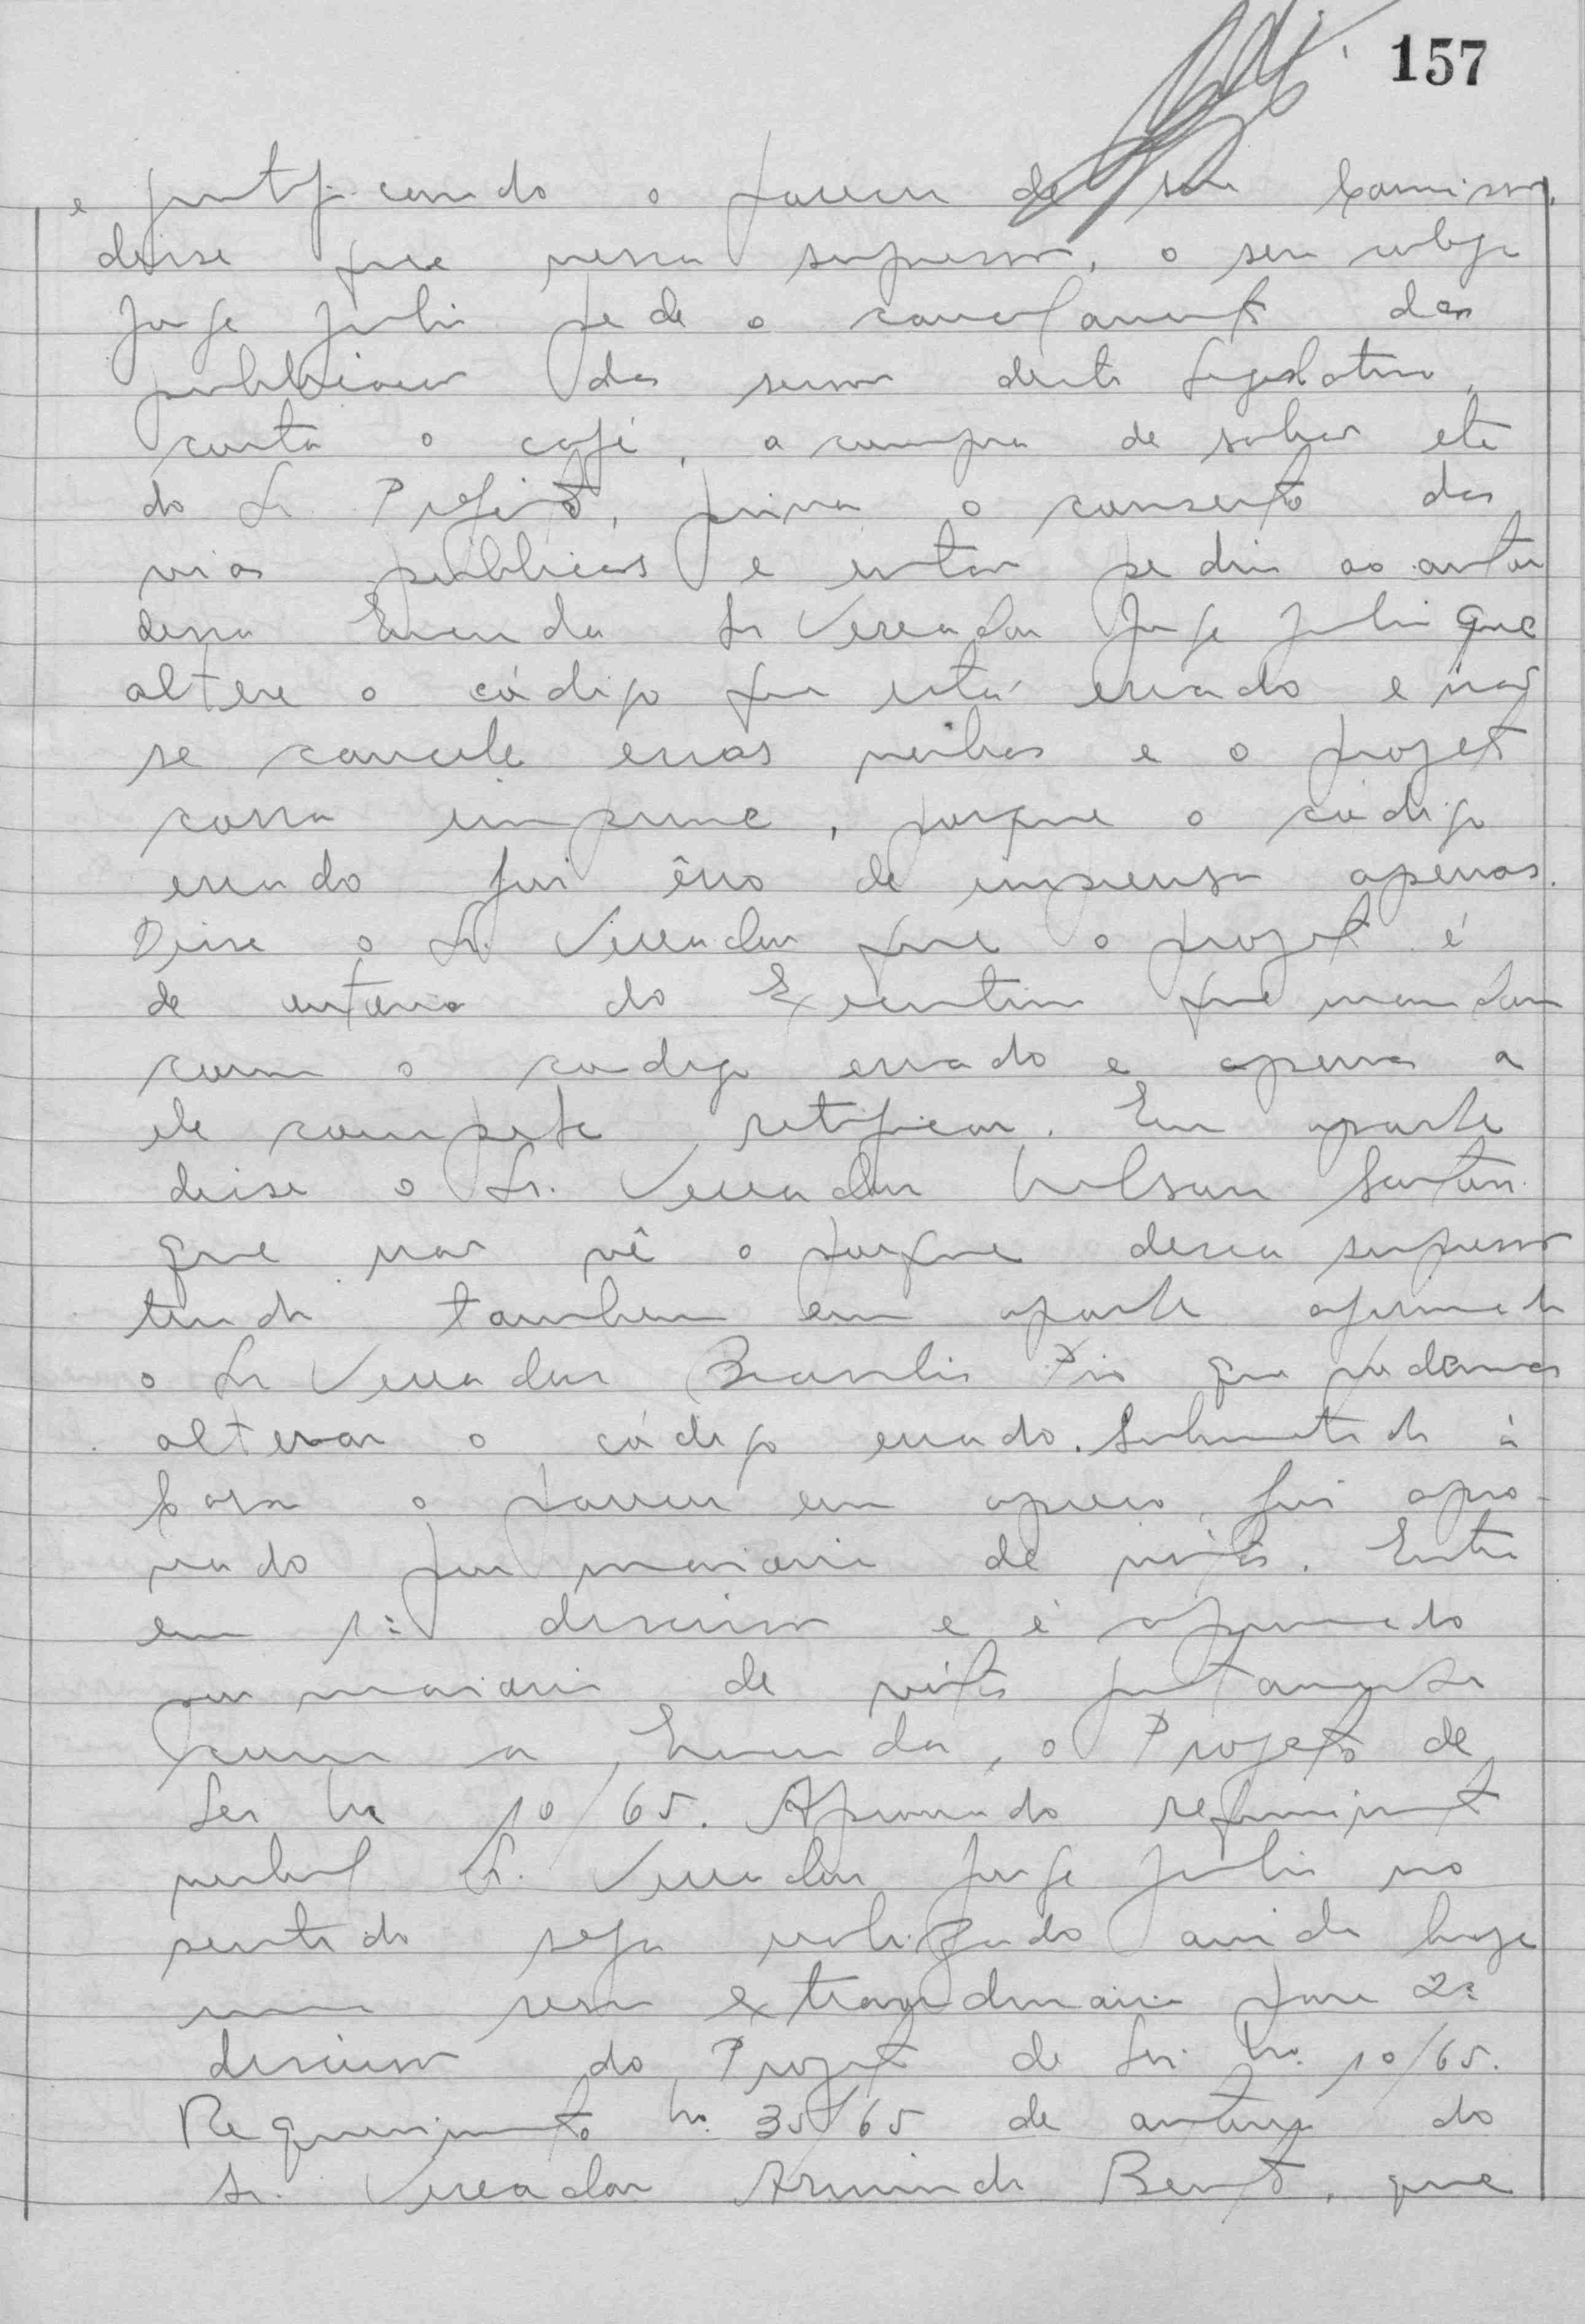 157
e justificando o parecer de sua Comissão,
disse que nessa supressão, o seu colega
Jorge Julio pede o cancelamento das
publicações das sessões deste Legislativo,
corta o café, a compra de etc
do Sr. Prefeito, priva o conserto das
vias públicas e então pediu ao autor
dessa Emenda Sr Vereador Jorge Julio que
altere o código que está errado e não
se cancele essas verbas e o projeto
corra impune, porque o código
errado foi êrro de imprensa apenas.
Disse o Sr. Vereador que o projeto é
de autoria do Executivo que mandou
com o codigo errado e apenas a
ele compete retificar. Em aparte
disse o Sr. Vereador Nelson Santos
que não vê o porque dessa supressão
tendo tambem em aparte afirmado
o Sr Vereador Brasilio Pio que podemos
alterar o código errado. Submetido à
Casa o parecer em apreço, foi apro-
vado por maioria de votos. Entra
em 1ª discussão e é aprovado
por maioria de votos juntamente
com a Emenda, o Projeto de
Lei No 10/65. Aprovado requerimento
verbal Sr. Vereador Jorge Julio no
sentido seja realizado ainda hoje
uma sessão extraordinaria para 2ª
discussão do Projeto de Lei No. 10/65.
Requerimento No. 35/65 de autoria do
Sr. Vereador Armindo Bento, que